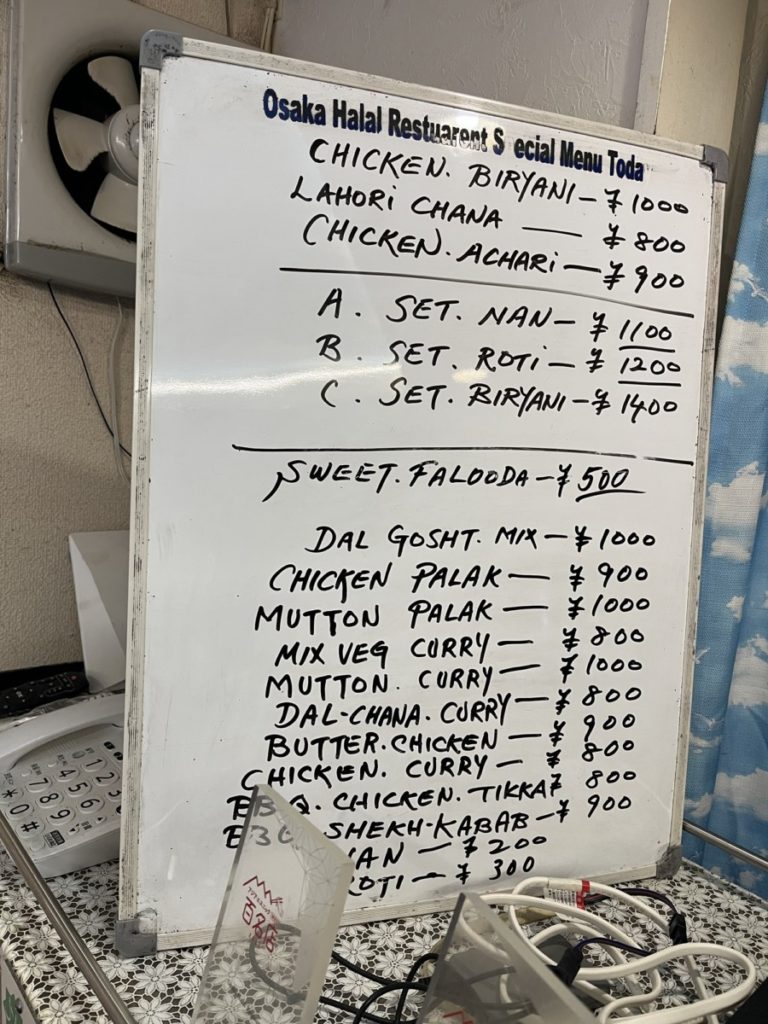 Osaka Halal Restuarent S ecial Menu Toda
CHICKEN. BIRYANI — ¥ 1000
LAHORI CHANA — ¥ 800
CHICKEN. ACHARI — ¥ 900
A. SET. NAN — ¥ 1100
B. SET. ROTI — ¥ 1200
C. SET. BIRYANI — ¥ 1400
SWEET. FALOODA — ¥ 500
DAL GOSHT. MIX — ¥ 1000
CHICKEN PALAK — ¥ 900
MUTTON PALAK — ¥ 1000
MIX VEG CURRY — ¥ 800
MUTTON. CURRY — ¥ 1000
DAL-CHANA. CURRY — ¥ 800
BUTTER. CHICKEN — ¥ 900
CHICKEN. CURRY — ¥ 800
BB Q. CHICKEN. TIKKA ¥ 800
BBQ SHEKH-KABAB — ¥ 900
NAN — ¥ 200
ROTI — ¥ 300
百名店
1 2 3
4 5 6
7 8 9
* 0 #